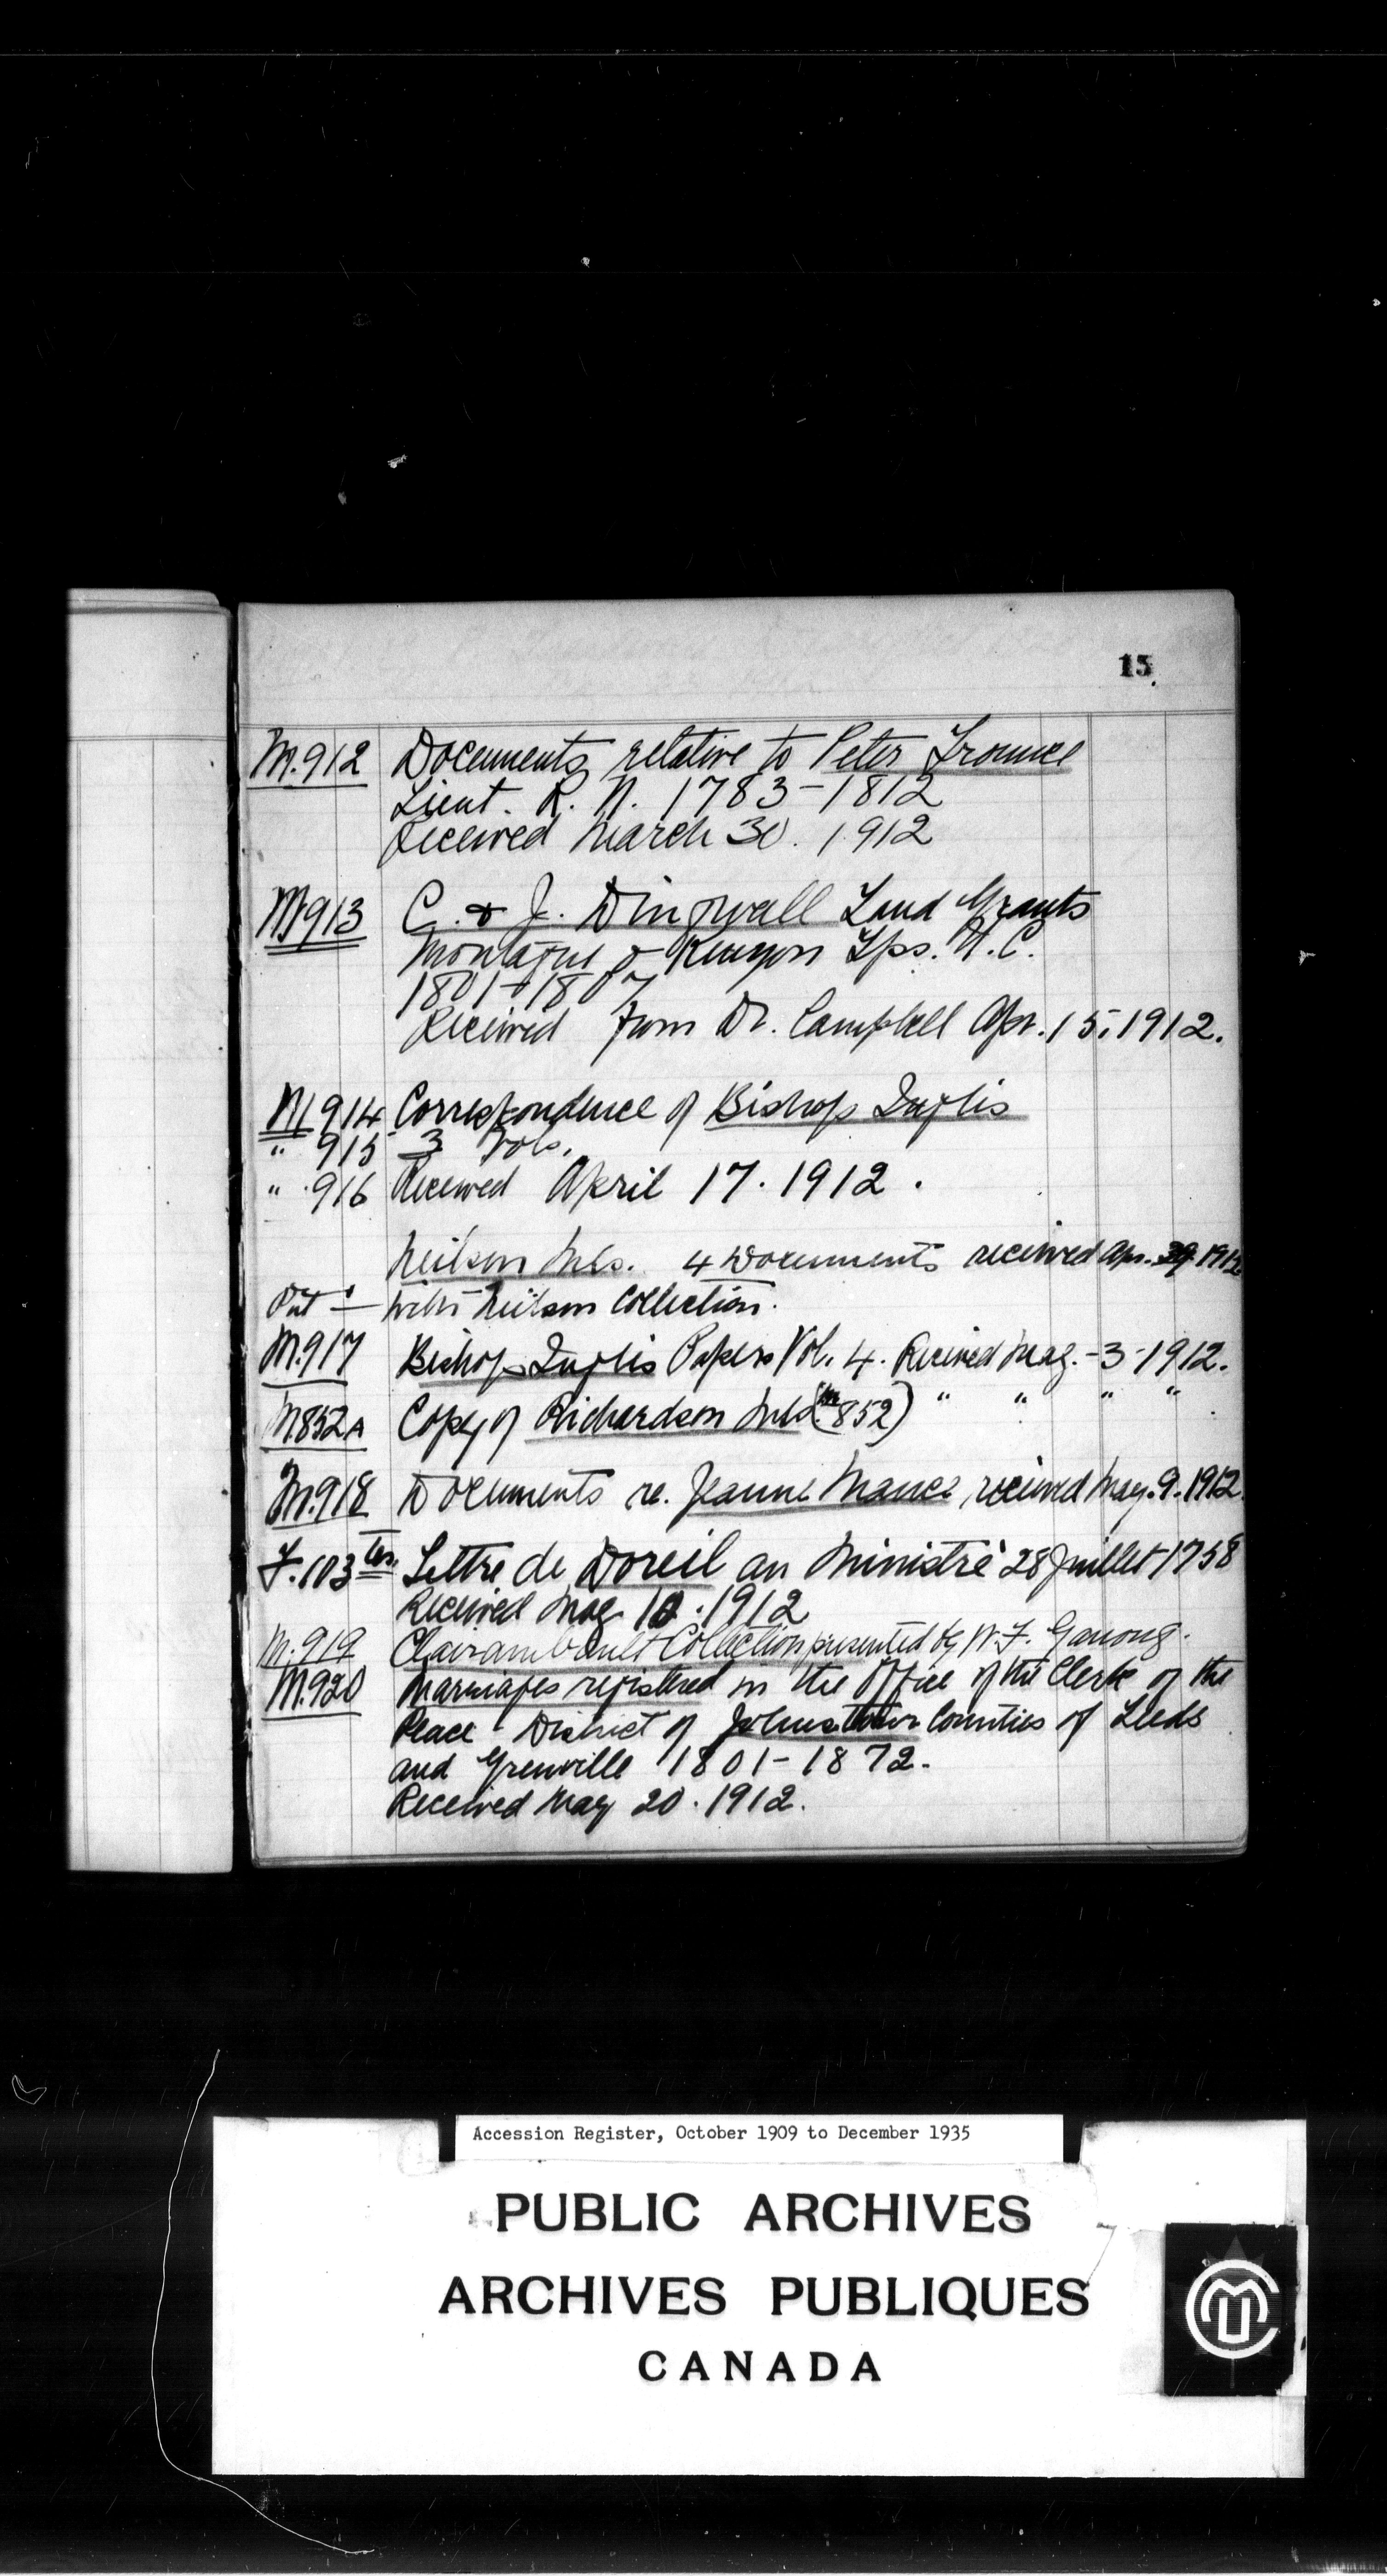 15
M.912 Documents relative to Peter Trounce
Lieut. R. N. 1783-1812
Received March 30. 1912
M913 C. & J. Dingwall Land Grants
Montague & Kenyon Tps. U.C.
1801-1807
Received from Dr. Campbell Apr. 15. 1912.
M914 Correspondence of Bishop Inglis
" 915 3 Vols.
" 916 Received April 17. 1912.
Neilson Mss. 4 Documents received Apr. 29. 1912
Put with Neilson Collection.
M.917 Bishop Inglis Papers Vol. 4. Received May.-3-1912.
M852A Copy of Richardson Mss (M 852) " " " "
M.918 Documents re. Jeanne Mance, received May. 9. 1912
F.103 ter. Lettre de Doreil au Ministre 28 Juillet 1758
Received May 10. 1912
M.919 Clairambault Collection presented by W. F. Ganong.
M.920 Marriages registered in the Office of the Clerk of the
Peace - District of Johnstown Counties of Leeds
and Grenville 1801-1872.
Received May 20. 1912.
Accession Register, October 1909 to December 1935
PUBLIC ARCHIVES
ARCHIVES PUBLIQUES
CANADA